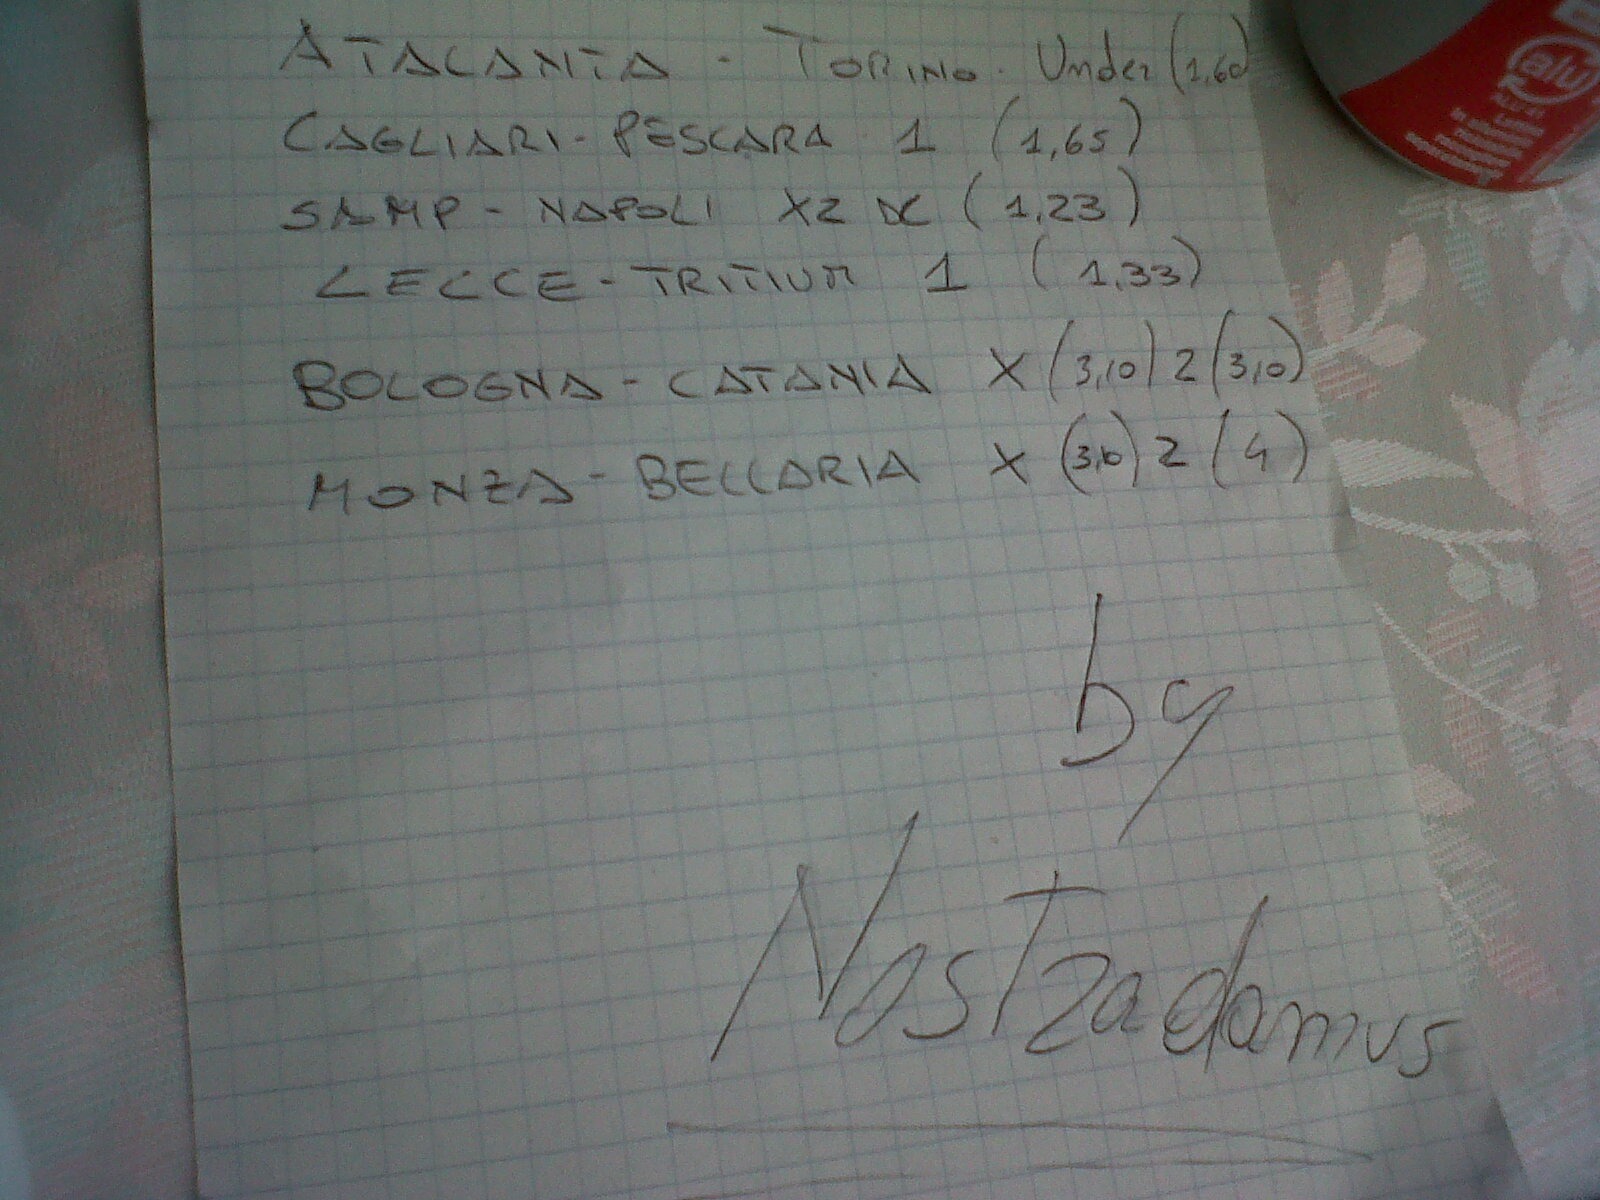 ATALANTA - TORINO. Under (1,60)
CAGLIARI - PESCARA 1 (1,65)
SAMP - NAPOLI X2 DC (1,23)
LECCE - TRITIUM 1 (1,33)
BOLOGNA - CATANIA X (3,10) 2 (3,10)
MONZA - BELLARIA X (3,10) 2 (4)
by
Nostradamus
alu